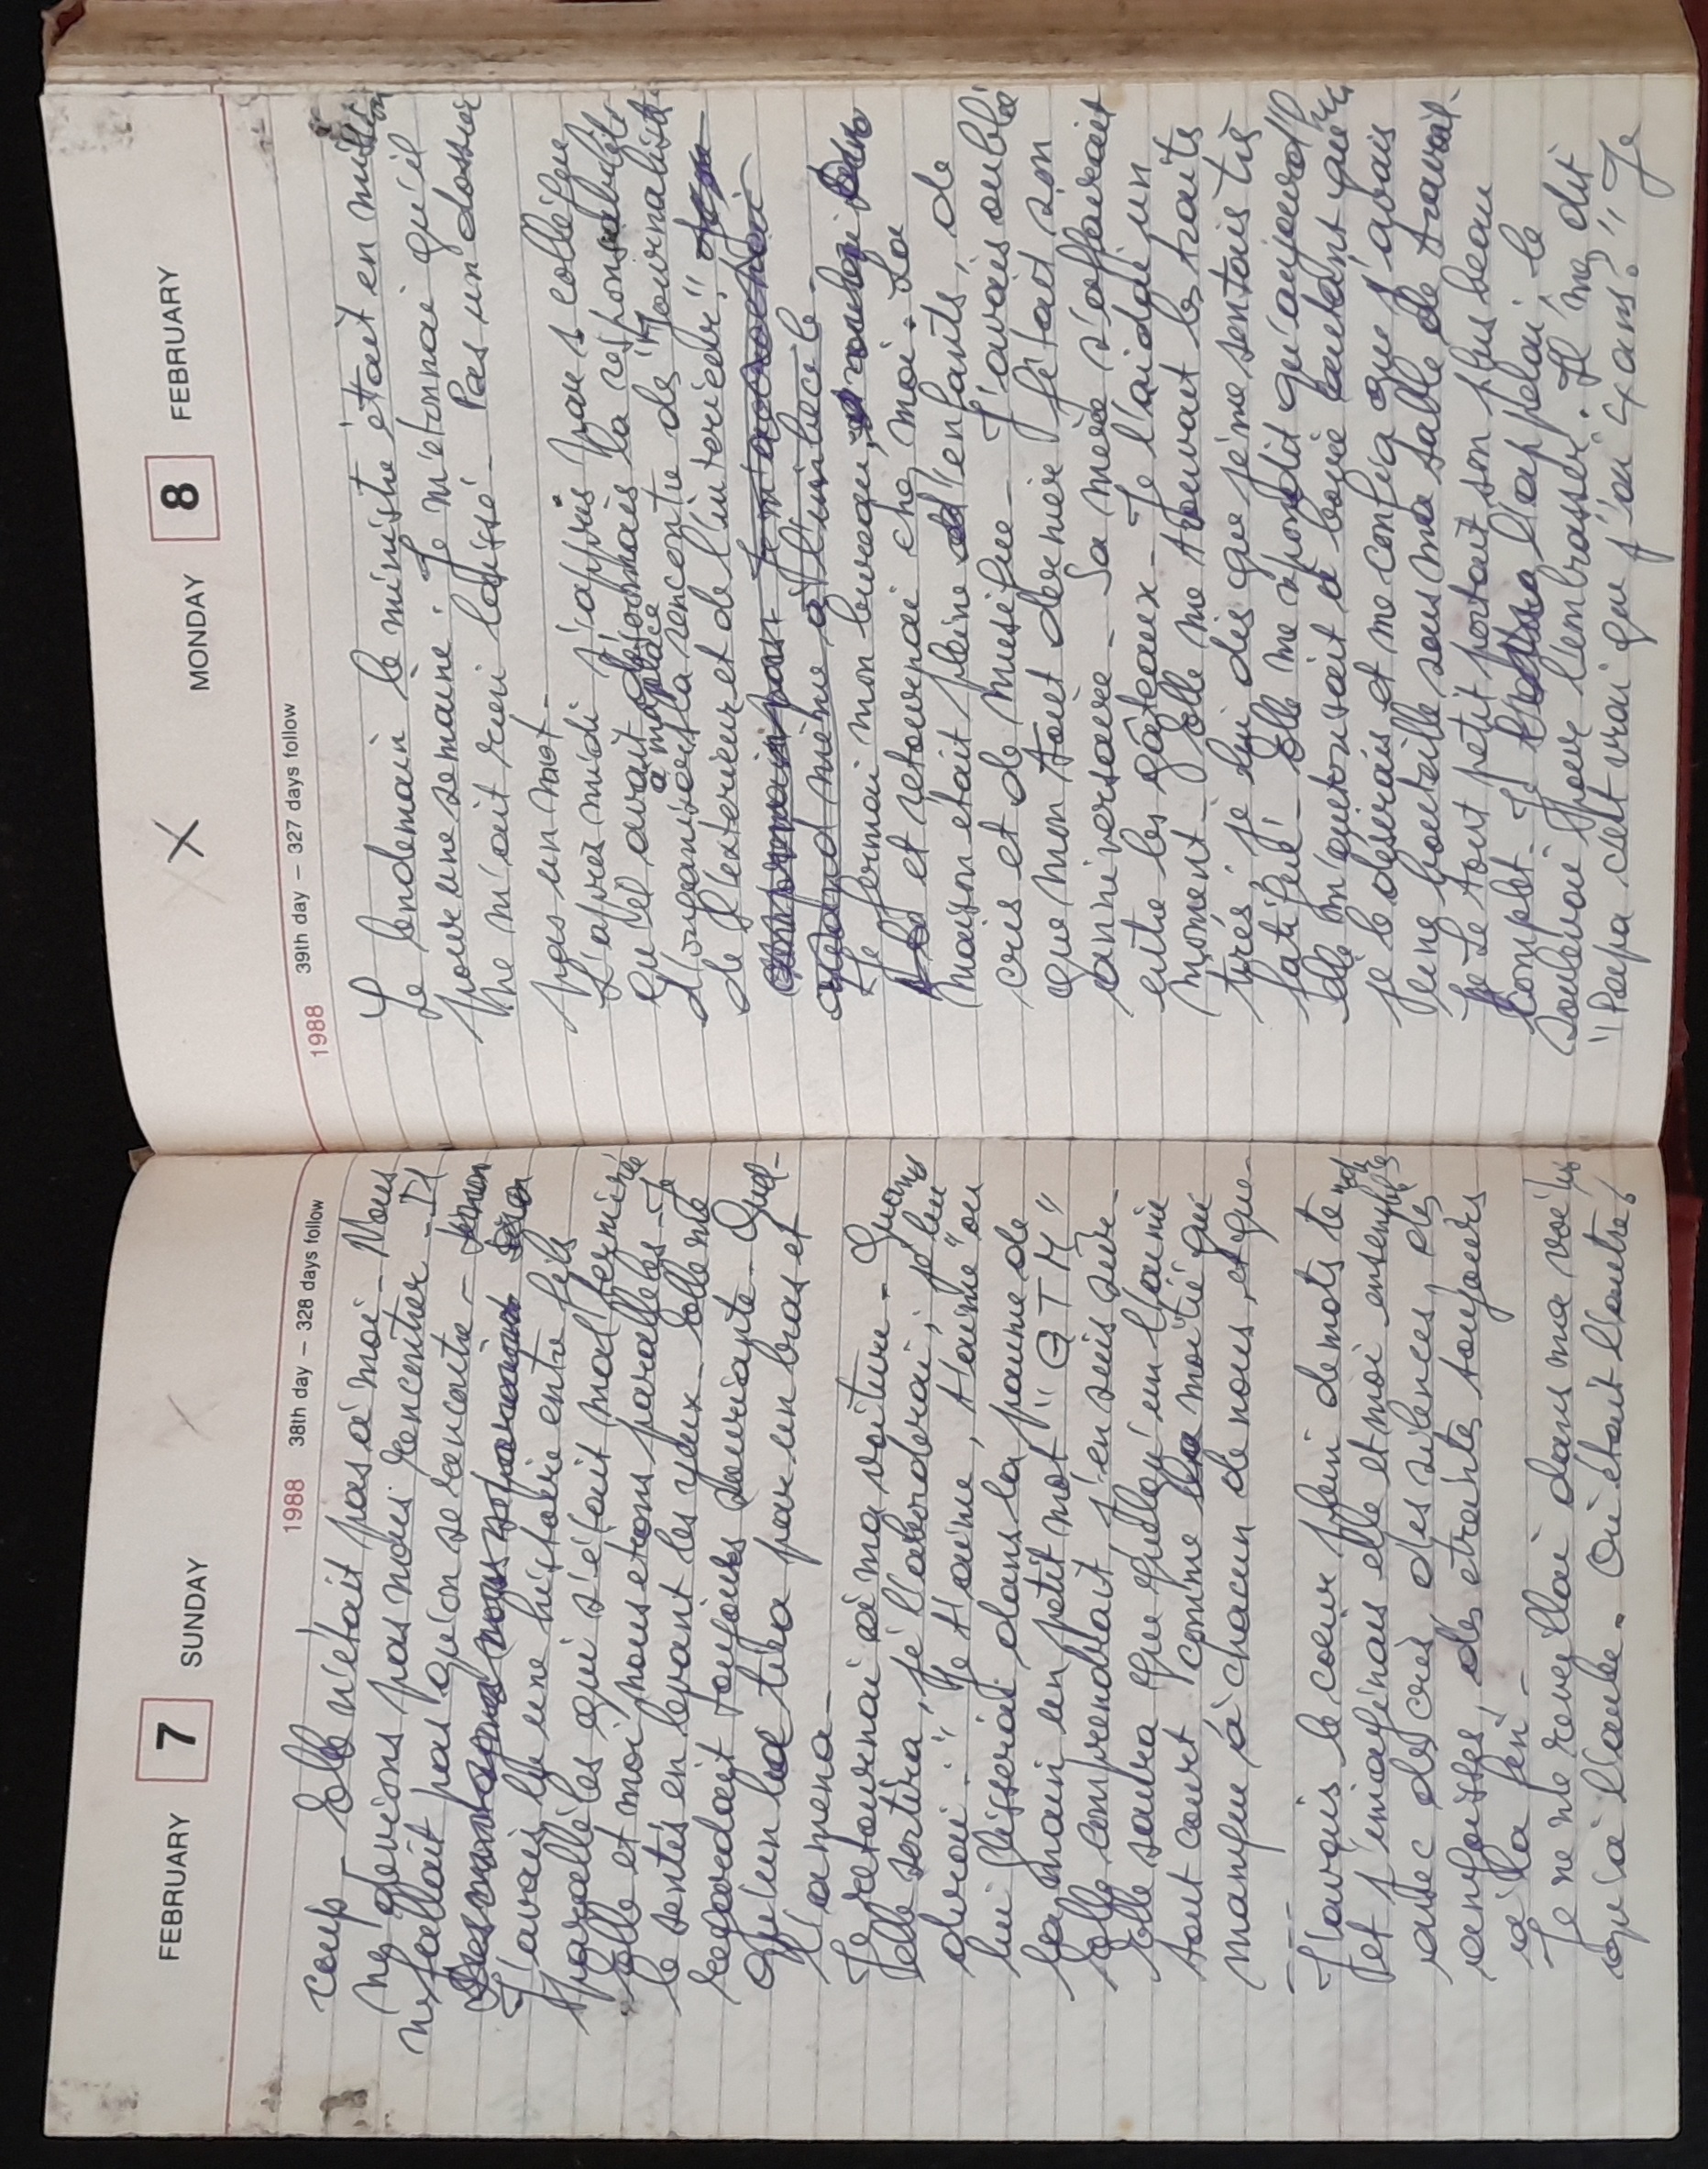 FEBRUARY 7 SUNDAY
1988 38th day – 328 days follow
coup – Elle n'était pas à moi – Nous
ne devions pas nous rencontrer – Il
ne fallait pas qu'on se rencontre –
J'avais lu une histoire entre fils
parallèles qui s'était mal terminée
Elle et moi, nous etions parallèles – Je
le sentis en levant les yeux – Elle me
regardait toujours souriante – Quel-
qu'un la tira par un bras et
l'amena –
Je retournai à ma voiture – Quand
elle sortira, je l'aborderai, je lui
dirai : "Je t'aime, t'aime" ou
lui glisserai dans la paume de
la main un petit mot "G T M"
Elle comprendrait j'en suis sûr –
Elle saura que quelqu'un l'aime
tout court comme sa moitié qui
manque à chacun de nous, et que –
J'avais le coeur plein de mots tendres
et j'imaginais elle et moi ensemble
avec des cris, des silences, des
angoisses, des etreintes toujours
à la fin –
Je ne me reveillai dans ma voiture
qu'à l'aube. Où était l'autre ?
MONDAY 8 FEBRUARY
X
1988 39th day – 327 days follow
Le lendemain le ministre était en mission
pour une semaine. Je m'étonnai qu'il
ne m'ait rien laissé – Pas un dossier
pas un mot –
L'après midi j'appris par s collègue
qu'il avait désormais la responsabilité
à ma place
d'organiser la rencontre de "journalistes
de l'exterieur et de l'interieur".
quand même à l'imbécile –
Je fermai mon bureau,
et retournai chez moi. La
maison était pleine d'enfants, de
cris et de musique – J'avais oublié
que mon tout dernier fêtait son
anniversaire – Sa mère s'affairait
entre les gâteaux – Je l'aidai un
moment – Elle me trouvait les traits
tirés, je lui dis que je me sentais très
fatigué – Elle me répondit qu'aujourd'hui
elle m'autorisait à boire autant que
je le désirais et me confia que j'avais
une bouteille sous ma table de travail –
Le tout petit portait son plus beau
complet – Je l'appelai, le
soulevai pour l'embrasser. Il me dit
"Papa c'est vrai que j'ai 4 ans ?" Je